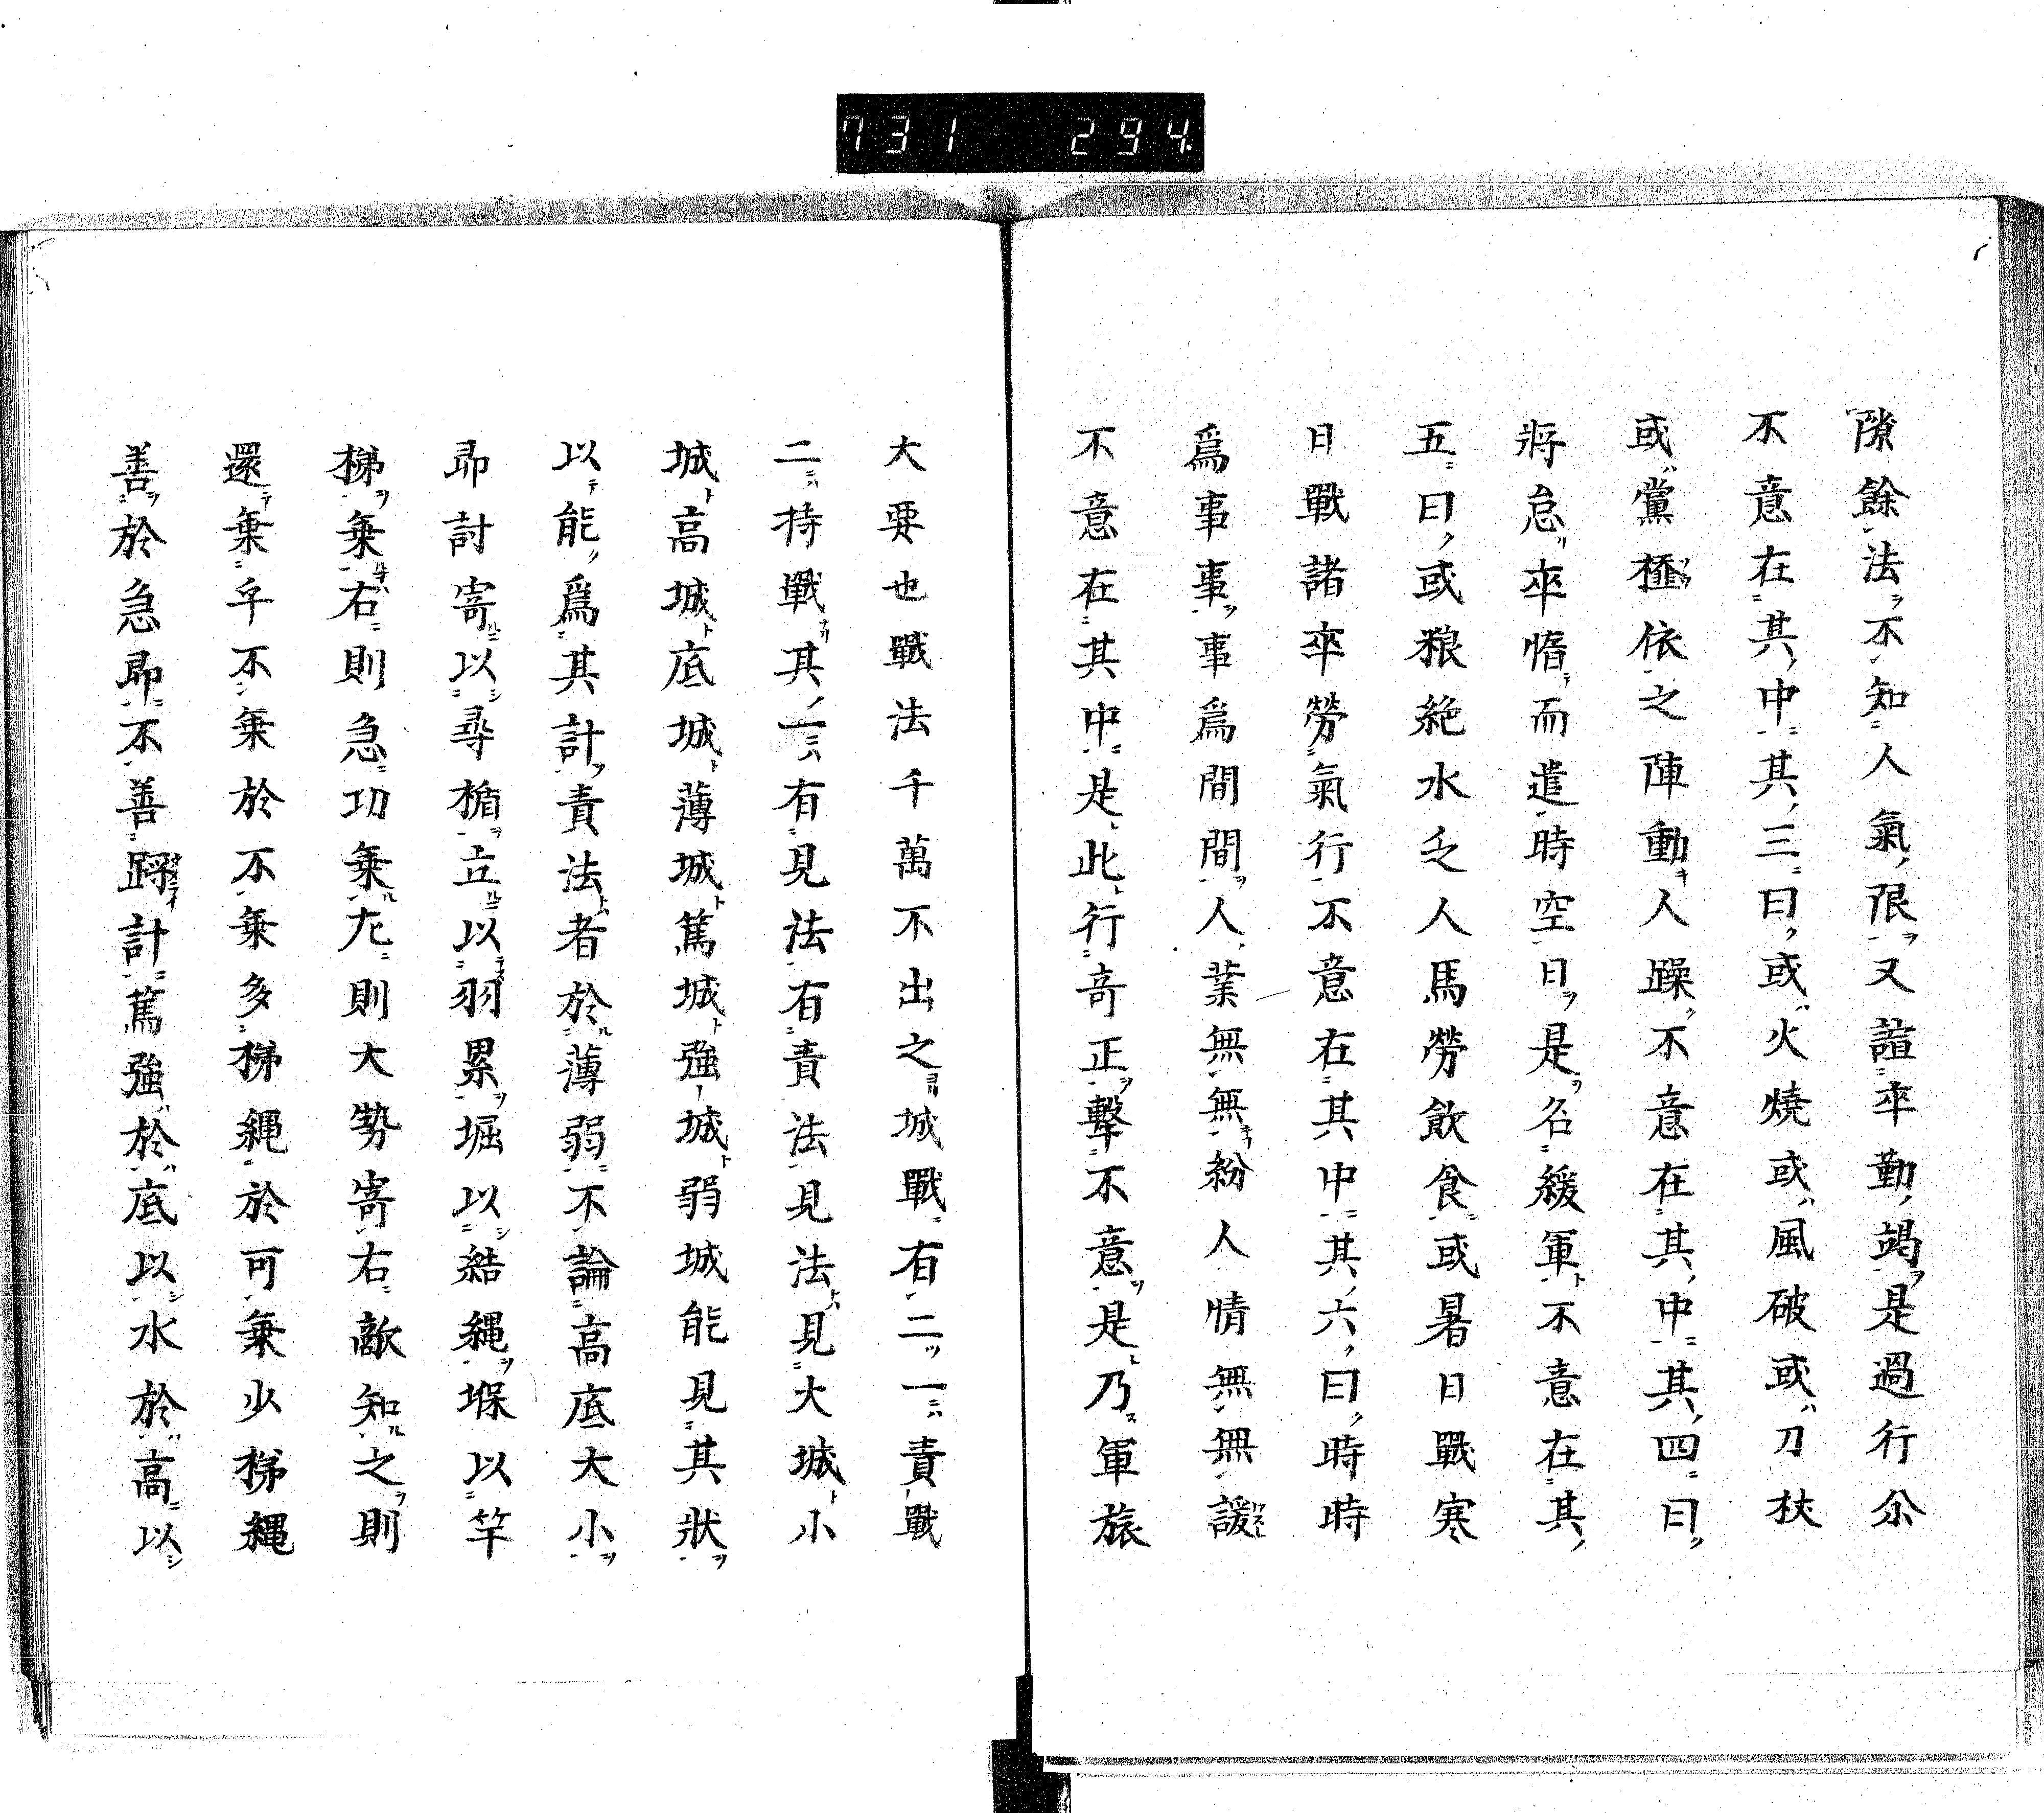 731 294
隙餘法不知人氣限又諠卒勤竭是過行尒
不意在其中其三曰或火燒或風破或刀杖
或黨極依之陣動人躁不意在其中其四曰
將怠卒惰而遣時空日是名緩軍不意在其
五曰或粮絶水乏人馬勞飲食或暑日戰寒
日戰諸卒勞氣行不意在其中其六曰時時
爲事事事爲間間人業無無紛人情無無諼
不意在其中是此行竒正擊不意是乃軍旅
大要也戰法千萬不出之城戰有二一責戰
二持戰其一有見法有責法見法見大城小
城高城底城薄城篤城強城弱城能見其狀
以能爲其計責法者於薄弱不論高底大小
即討寄以尋楯立以羽累堀以結縄堢以竿
梯乗右則急功乗九則大勢寄右敵知之則
還乗乎不乗於不乗多梯縄於可乗少梯縄
善於急即不善計篤強於底以水於高以